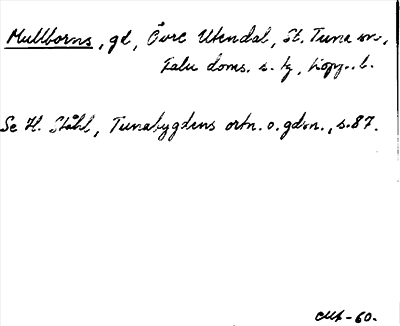 Mullborns, gd, Övre Utendal, St. Tuna sn,
Falu doms. s. tg, Kopp. l.
Se H. Ståhl, Tunabygdens ortn. o. gdsn., s. 87.
-60-